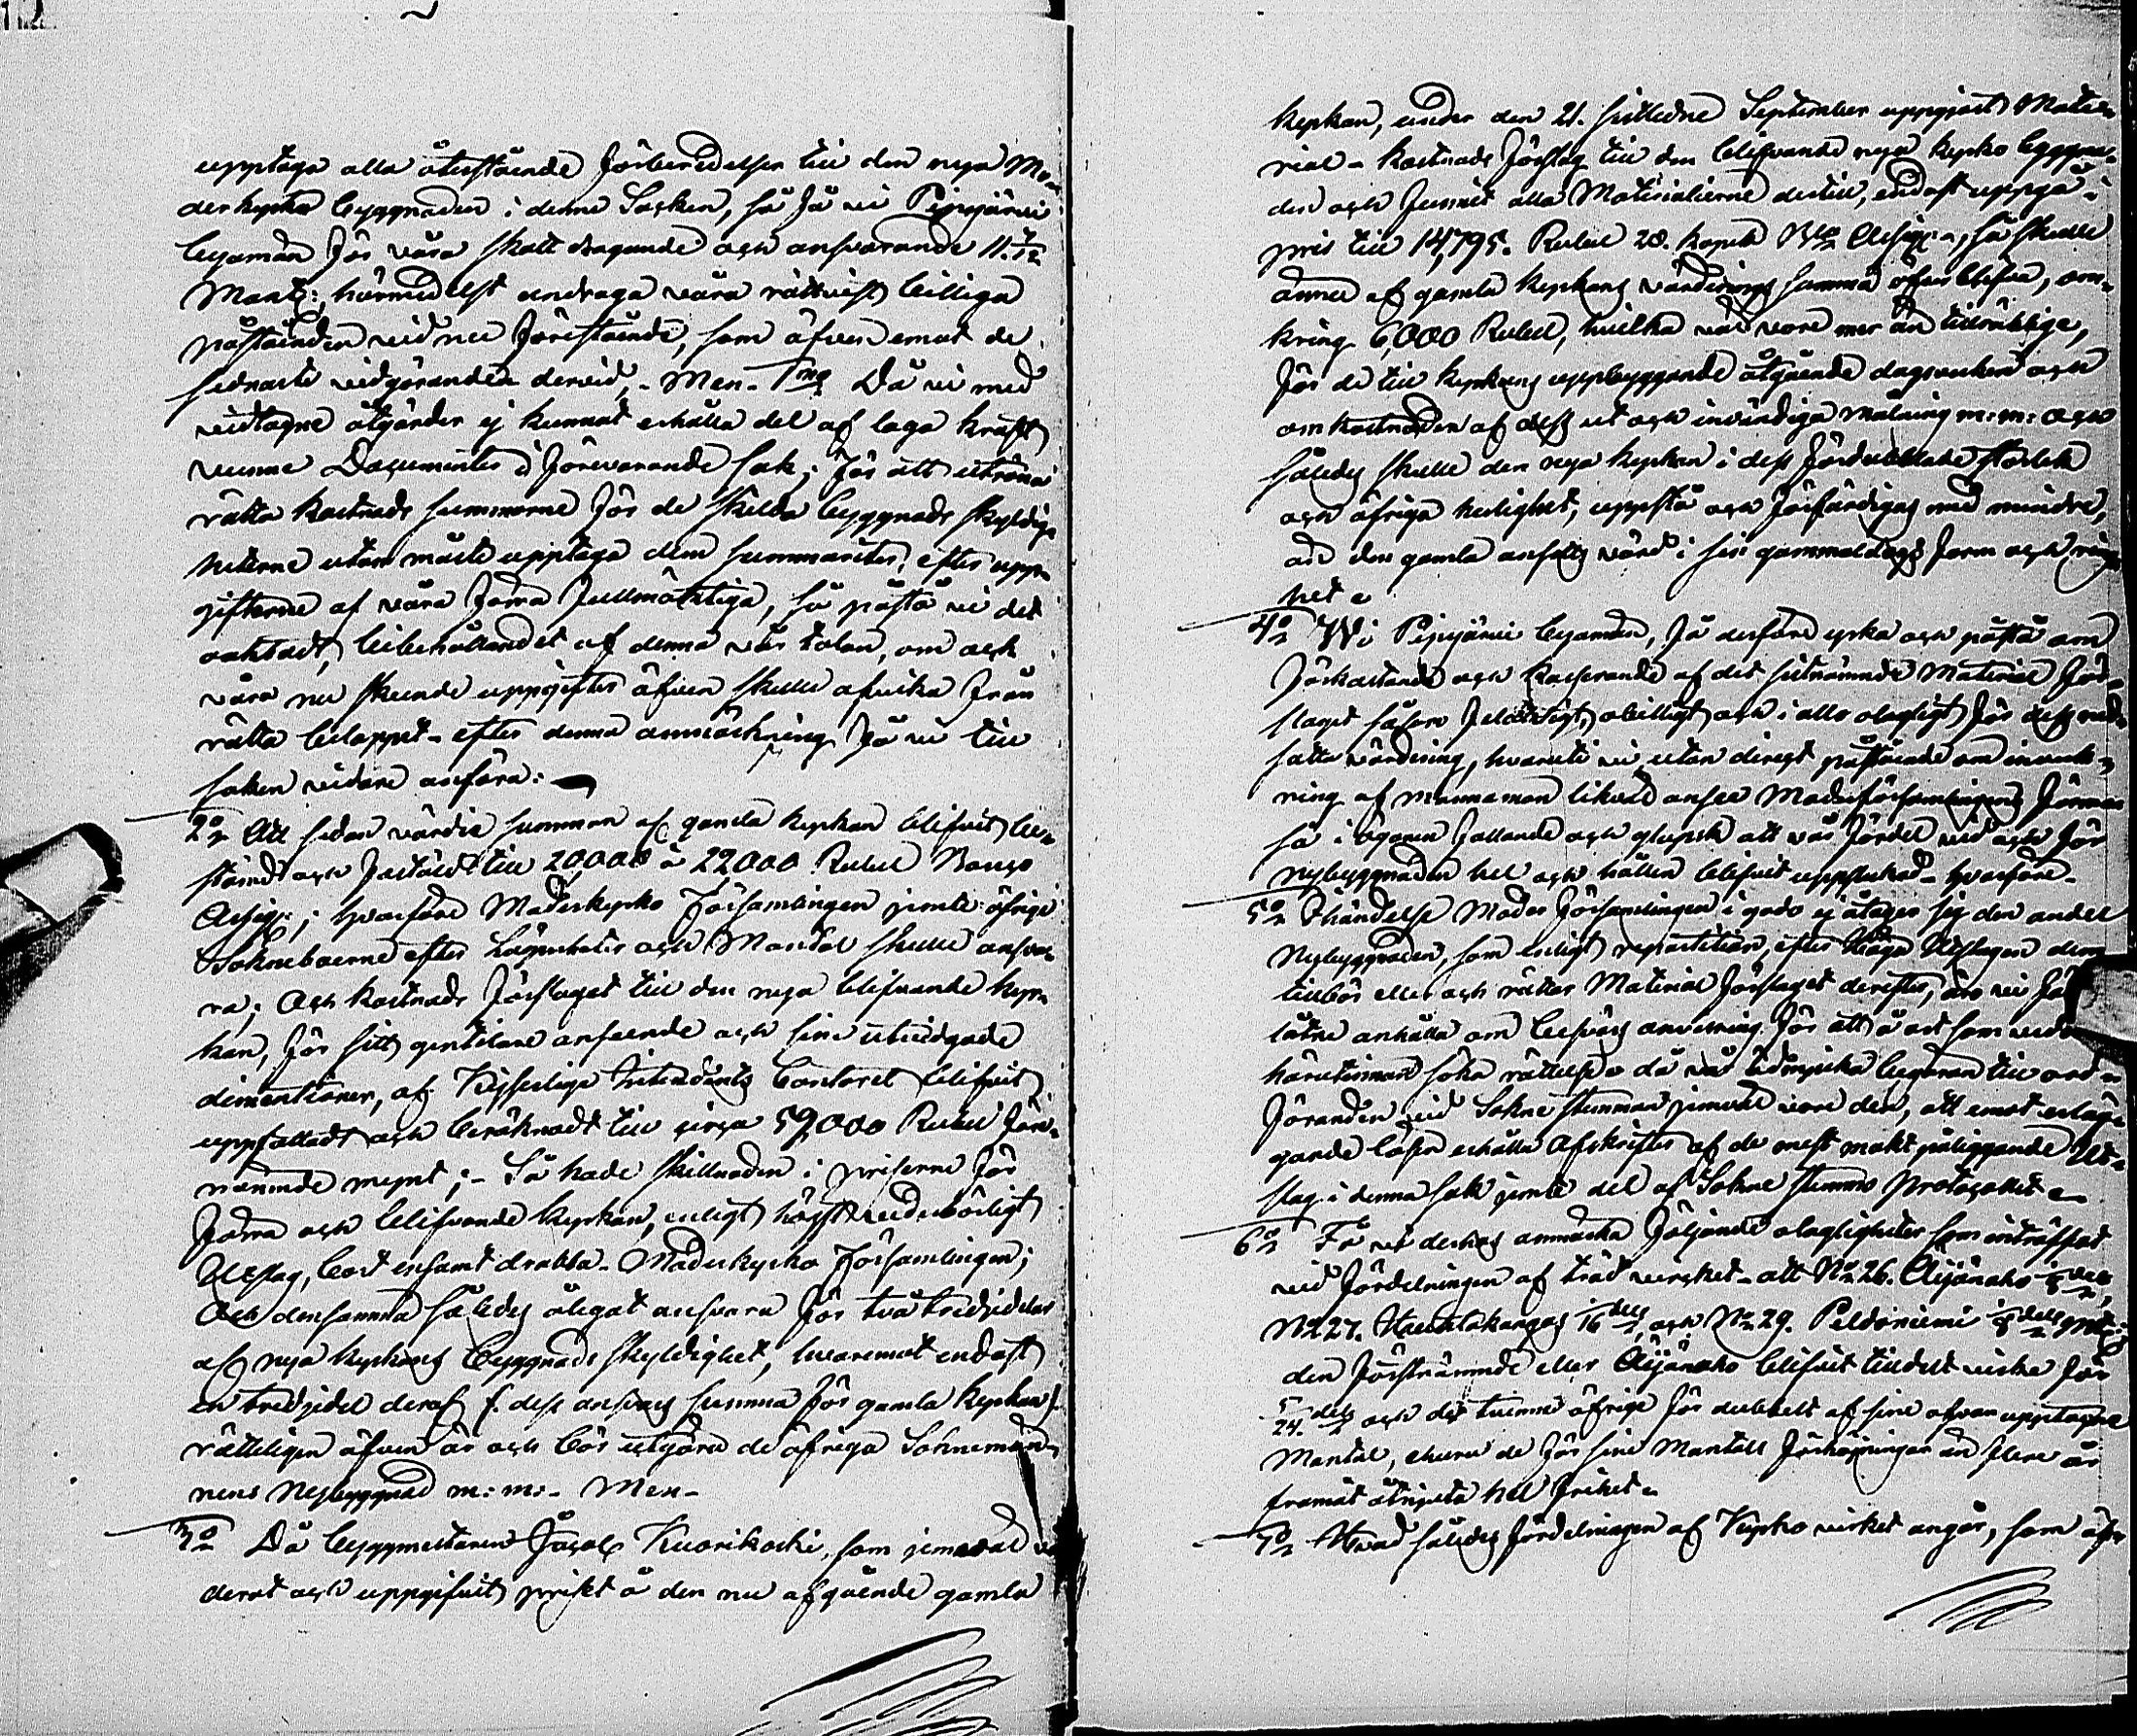 upptaga alla återstående förberedelser till den nya Mo-
derkyrko byggnaden i denne Socken, så få vi Piippjärvi
byamän för våra skatt dragande och ansvarande 11 7/12
Mantl: härmedelst andraga våra rättvist billiga
påståenden vid nu förestående, som äfven emot de
sednaste vidgöranden dervid, - Men - 1mo Då vi med
vidtagne åtgärder ej kunnat erhålla del af laga kraft
vunne Documenter i förevarande sak, för att utröna
rätta kostnads summorne för de skilda byggnads skyldig-
heterne utan måste upptaga dem summariter, efter upp-
gifterne af våra förra fullmäktiga, så påstå vi det
oaktadt, bibehållandet af denna vår talan, om ock
våra nu skeende uppgifter äfven skulle afvika från
rätta beloppet - efter denna anmärkning få vi till
saken vidare anföra: -
2o Att sedan värdie summan af gamla kyrkan blifvit be-
stämd och faststäld till 20,000 à 22,000 Rubel Banco
Assign:; hvarföre Moderkyrko Församlingen jemte öfrige
Sokneboerne efter Lägenheter och Mantal skulle ansva-
ra; Och kostnads förslaget till den nya blifvande kyr-
kan, för sitt gentilare anseende och sine utvidgade
dimentioner, af Kejserliga Intendents Contoret blifvit
uppfattadt och beräknadt till circa 59000 Rubel före-
nämnde mynt; - Så hade skillnaden i priserne för
förra och blifvande kyrkan, enligt högst vederbörligt
Utslag, bort ensamt drabba - Moderkyrko Församlingen;
Och densamma således ålegat ansvara för två tredjedelar
af nya kyrkans Byggnads skyldighet, hvaremot endast
en tredjedel deraf /: dess ansvars summa för gamla kyrkan:/
rätteligen äfven är och bör utgöra de öfriga Sokneman-
nens Nybyggnad m: m: - Men -
3o Då byggmästaren Jacob Kuorikoski, som jemväl vär-
derat och uppgifvit priset å den nu afgående gamla
kyrkan, under den 21. sistledne September uppgjort Mate-
rial - kostnads förslag till den blifvande nya kyrko byggna-
den och funnit alla Materialierne dertill, endast uppgå i
pris till 14,795. Rubel 28. kopek Bko Assign -, så skulle
ännu af gamla kyrkans värderings summa öfver blifva, om-
kring 6,000 Rubel, hvilka väl vore mer än tillräklige,
för de till kyrkans uppbyggande åtgående dagsverken och
omkostnaden af dess ut och invändiga målning m: m: Och
således skulle den nya kyrkan i dess förstorade storlek
och öfriga herlighet, uppstå och förfärdigas med mindre,
än den gamla ansetts värd i sin gammaldags form och ring-
het -
4o Wi Piippjärvi byamän, få derföre yrka och påstå om
förkastande och kasserande af det sistnämnde Material För-
slaget såsom felaktigt, obilligt och i allo olagligt för dess ned-
satta värdering, hvaruti vi utan direct påstående om inverk-
ning af mannamån likväl anse Moderförsamlingens förmån
så i ögonen fallande och glupsk att vår fördel vid och för
nybyggnaden hel och hållen blifvit uppslukad - hvarföre -
5o I händelse Moder Församlingen i godo ej åtager sig den andel
Nybyggnaden, som enligt repartition, efter Höga Utslagen dem
tillbör eller och rättar Material förslaget derefter, äro vi föran-
låtne anhålla om besvärs anvisning för att å ort som vederbör
härutinnan söka rättelse då vår tidmycka begäran till ord-
föranden vid Sokne stämman jemväl vore den, att emot erläg-
gande lösen erhålla Afskrifter af de mest makt påliggande Ut-
slag i denna sak jemte del af Sokne stämmo Protocollet -
6o Få vi derhos anmärka följande olagligheter som inträffat
vid fördelningen af träd vircket - att No 26. Äijänaho 1/8 dels,
No 27. Huuhtakangas 1/16 dels och No 29. Peldoniemi 1/8 dels Mtl:
den förstnämnde eller Äijänaho blifvit tilldelt virke för
5/24 dels och de tvenne öfrige för dubbelt af sine ofvan upptagne
Mantal, ehuru de för sine Mantals förhöjningar än flere år
framåt åtnjuta hel frihet -
7o Hvad således fördelningen af Kyrko virket angår, som äfv